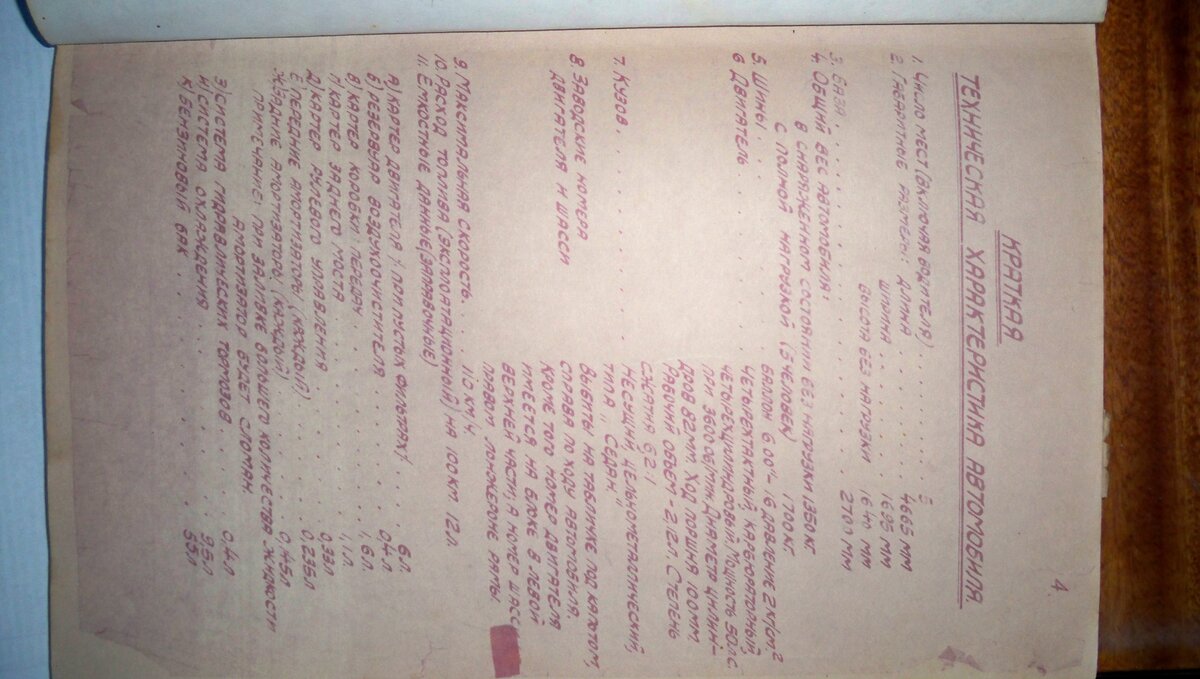 4.
КРАТКАЯ
ТЕХНИЧЕСКАЯ ХАРАКТЕРИСТИКА АВТОМОБИЛЯ.
1. Число мест (включая водителя) . . . . . . . . 5
2. Габаритные размеры: длина . . . . . . . . 4665 мм
ширина - . . . . . . . 1695 мм
высота без нагрузки 1640 мм
3. База . . . . . . . . . . . . . . . . 2700 мм
4. Общий вес автомобиля:
в снаряженном состоянии без нагрузки 1350 кг
с полной нагрузкой (5 человек) 1700 кг
5. Шины . . . . . . . баллон 6.00"- 16 давление 2 кг/см.²
6 Двигатель . . . . . . Четырехтактный, карбюраторный,
четырехцилиндровый, мощность 50 л.с.
при 3600 об/мин. Диаметр цилинд-
дров 82 мм. Ход поршня 100 мм
Рабочий объем - 2,12 л. Степень
сжатия 6,2 : 1
7. Кузов . . . . . . . Несущий, цельнометаллический,
типа „Седан"
8. Заводские номера
двигателя и шасси Выбиты на табличке под капотом,
справа по ходу автомобиля.
Кроме того номер двигателя
имеется на блоке в левой
верхней части, а номер шасс
правом лонжероне рамы.
9. Максимальная скорость. . . . . 110 км/ч.
10. Расход топлива (эксплоатационный) на 100 км. 12 л.
11. Емкостные данные (заправочные)
а) Картер двигателя / при пустых фильтрах / . . . 6 л.
б) Резервуар воздухоочистителя . . . . 0,4 л
в) Картер коробки передач . . . . . 1,6 л
г) Картер заднего моста . . . . . . 1,1 л
д) Картер рулевого управления . . . . 0,33 л
е) Передние амортизаторы (каждый) . . . 0,235 л
ж) Задние амортизаторы (каждый) . . . 0,145 л
Примечание: при заливке большего количества жидкости
амортизатор будет сломан.
з) Система гидравлических тормозов . . . 0,4 л
и) Система охлаждения . . . . . . 9,5 л
к) Бензиновый бак . . . . . . . . 55 л